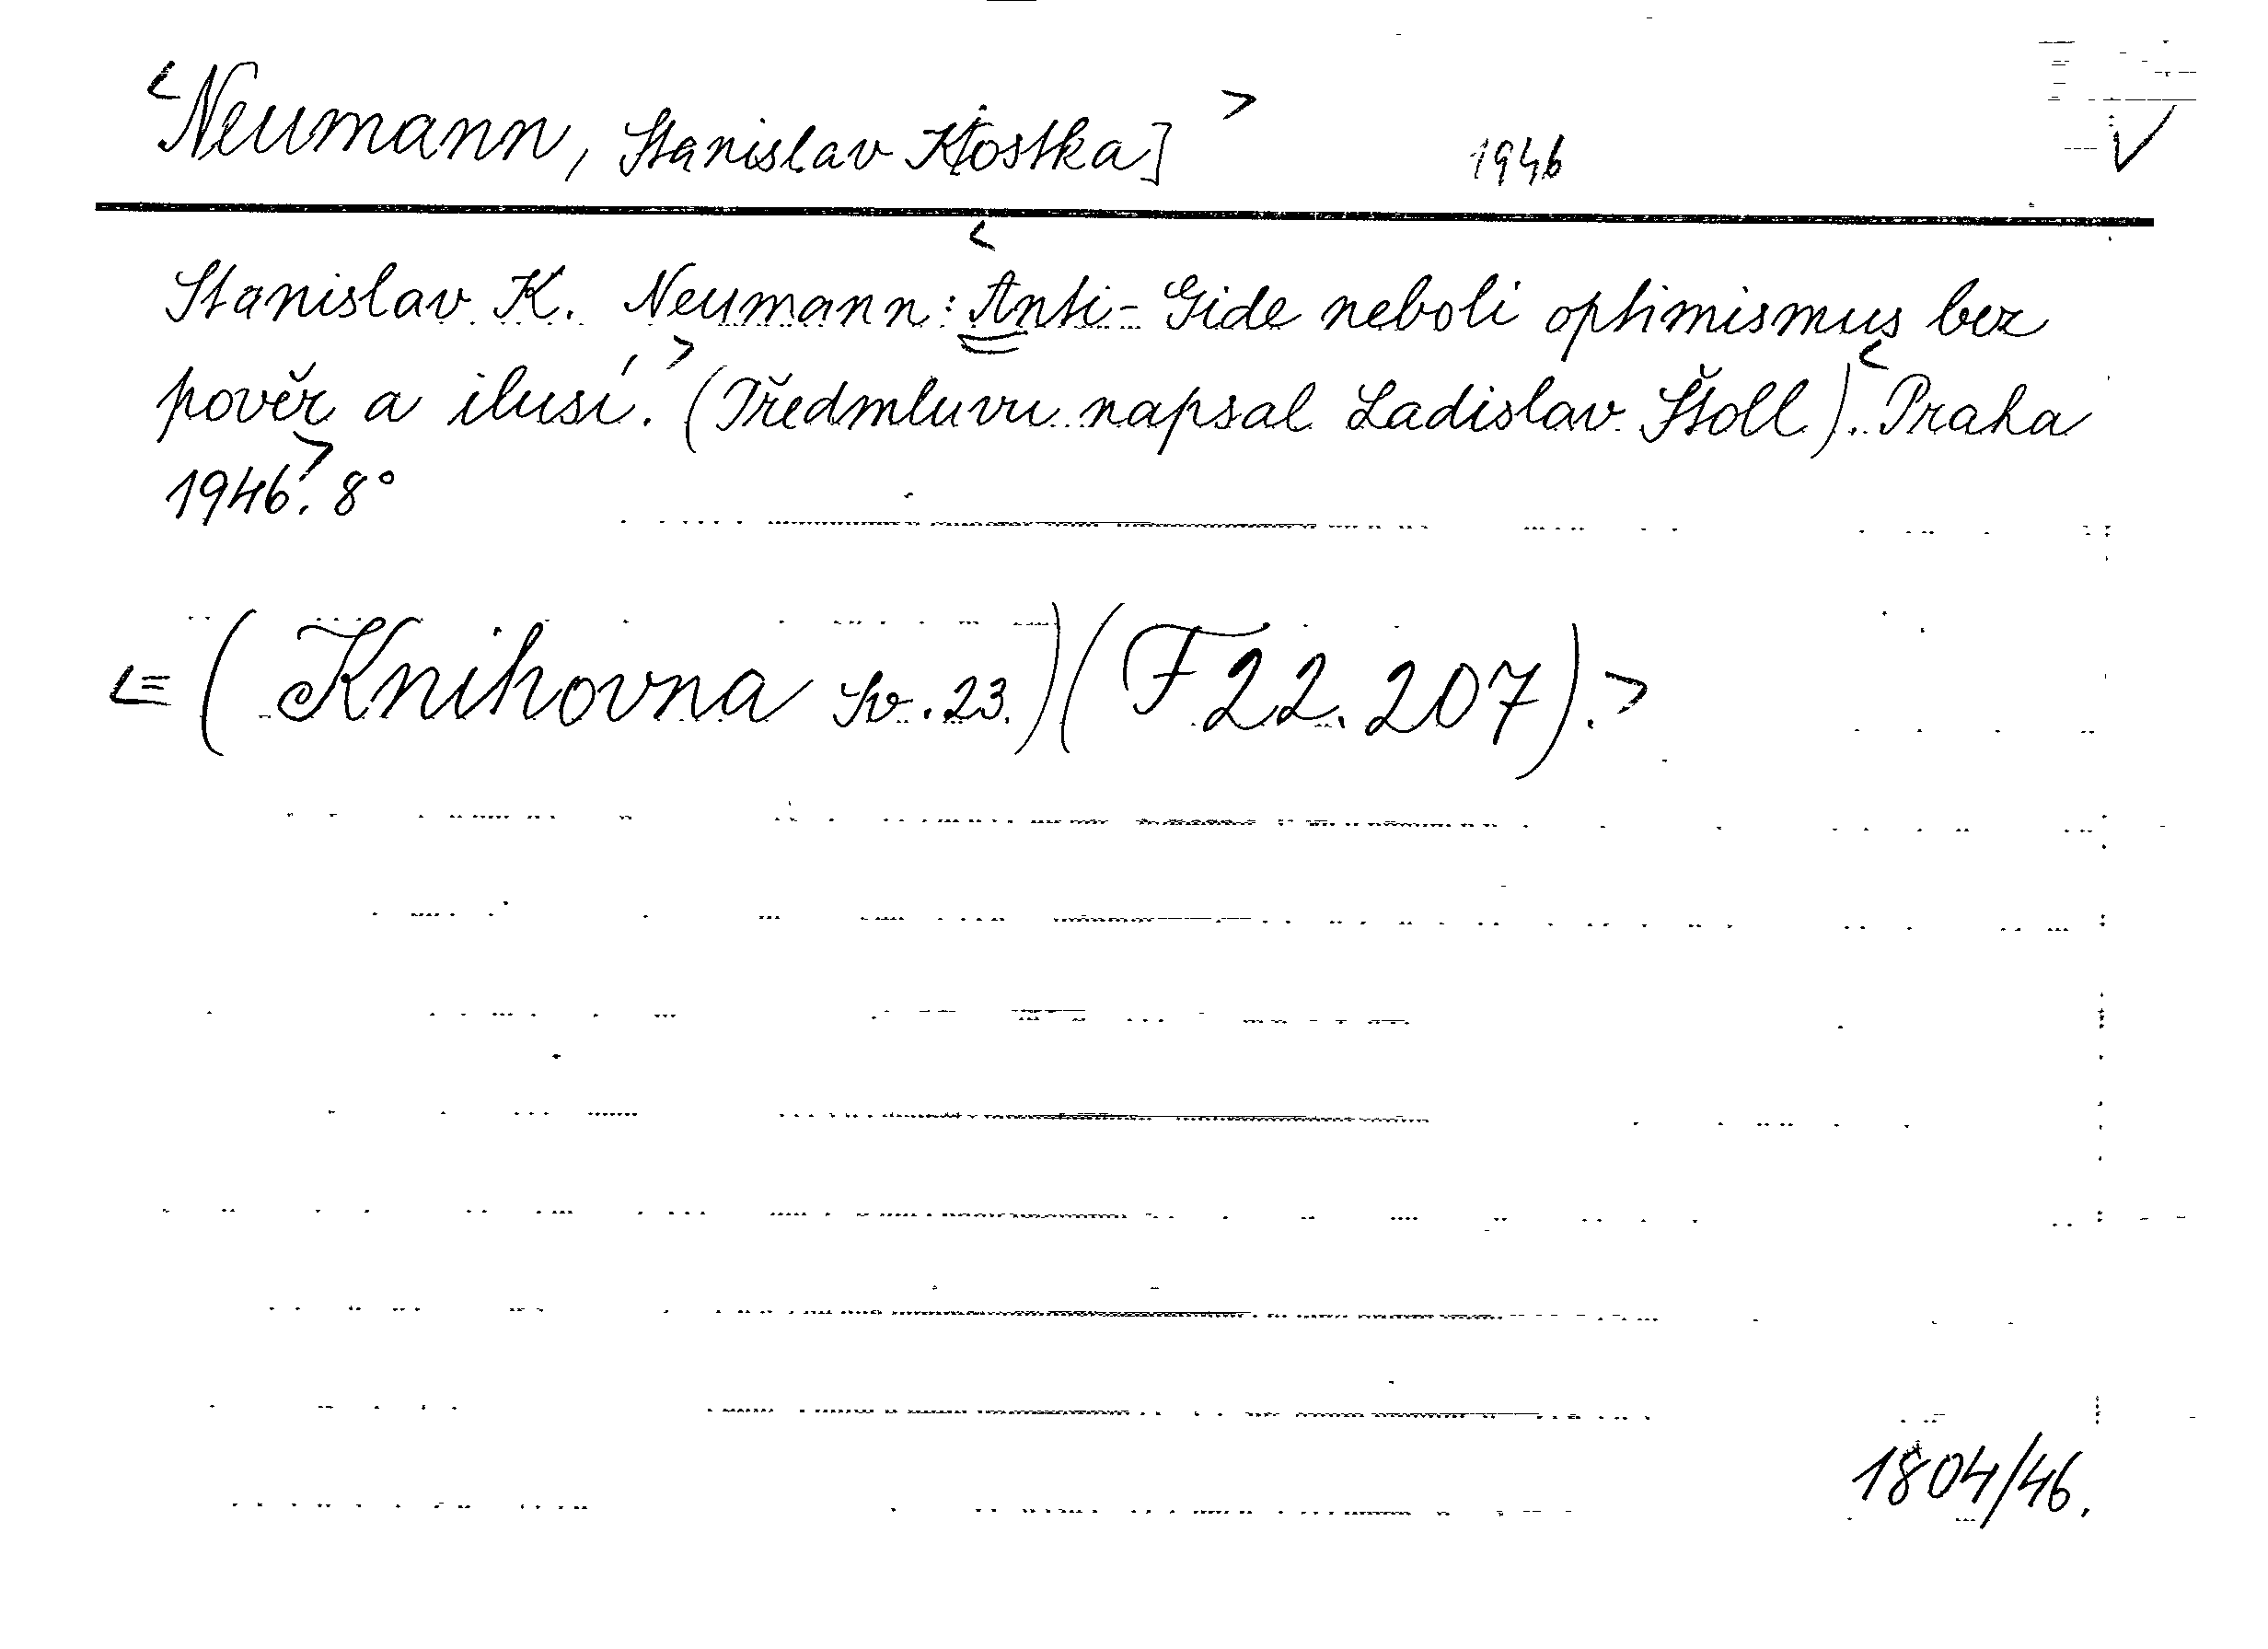 <Neumann, Stanislav K[ostka]> 1946 V
Stanislav K. Neumann: <Anti-Gide neboli optimismus bez
pověr a ilusí.> (Předmluvu napsal Ladislav Štoll). <Praha
1946>. 8°
<= (Knihovna sv. 23.) (F 22.207).>
1804/46.